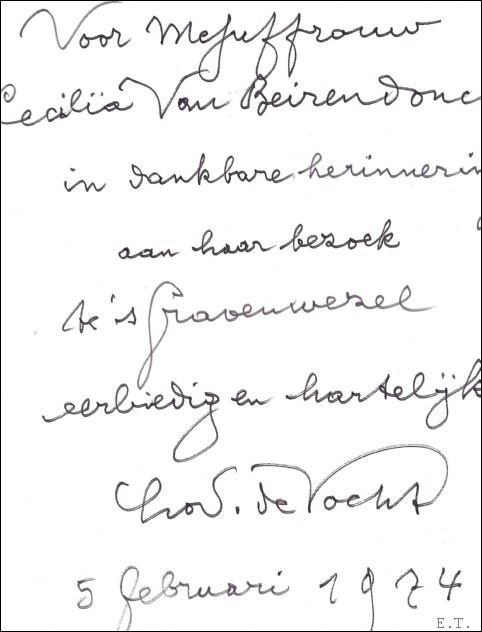 Voor Mejuffrouw
Cecilia Van Beirendonc
in dankbare herinnerin
aan haar bezoek
te 's Gravenwezel
eerbiedig en hartelijk
Lod. de Vocht
5 februari 1974
E.T.